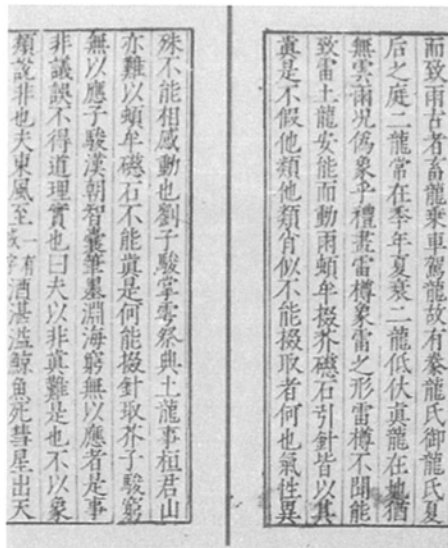 而致雨古者畜龍乘車駕龍故有豢龍氏御龍氏夏
后之庭二龍常在季年夏衰二龍低伏眞龍在地猶
無雲雨况僞象乎禮畫雷樽象雷之形雷樽不聞能
致雷土龍安能而動雨頓牟掇芥磁石引針皆以其
眞是不假他類他類肯似不能掇取者何也氣性異
殊不能相感動也劉子駿掌雩祭典土龍事桓君山
亦難以頓牟磁石不能眞是何能掇針取芥子駿窮
無以應子駿漢朝智囊筆墨淵海窮無以應者是事
非議誤不得道理實也曰夫以非眞難是也不以象
類說非也夫東風至一有感字酒湛溢鯨魚死彗星出天